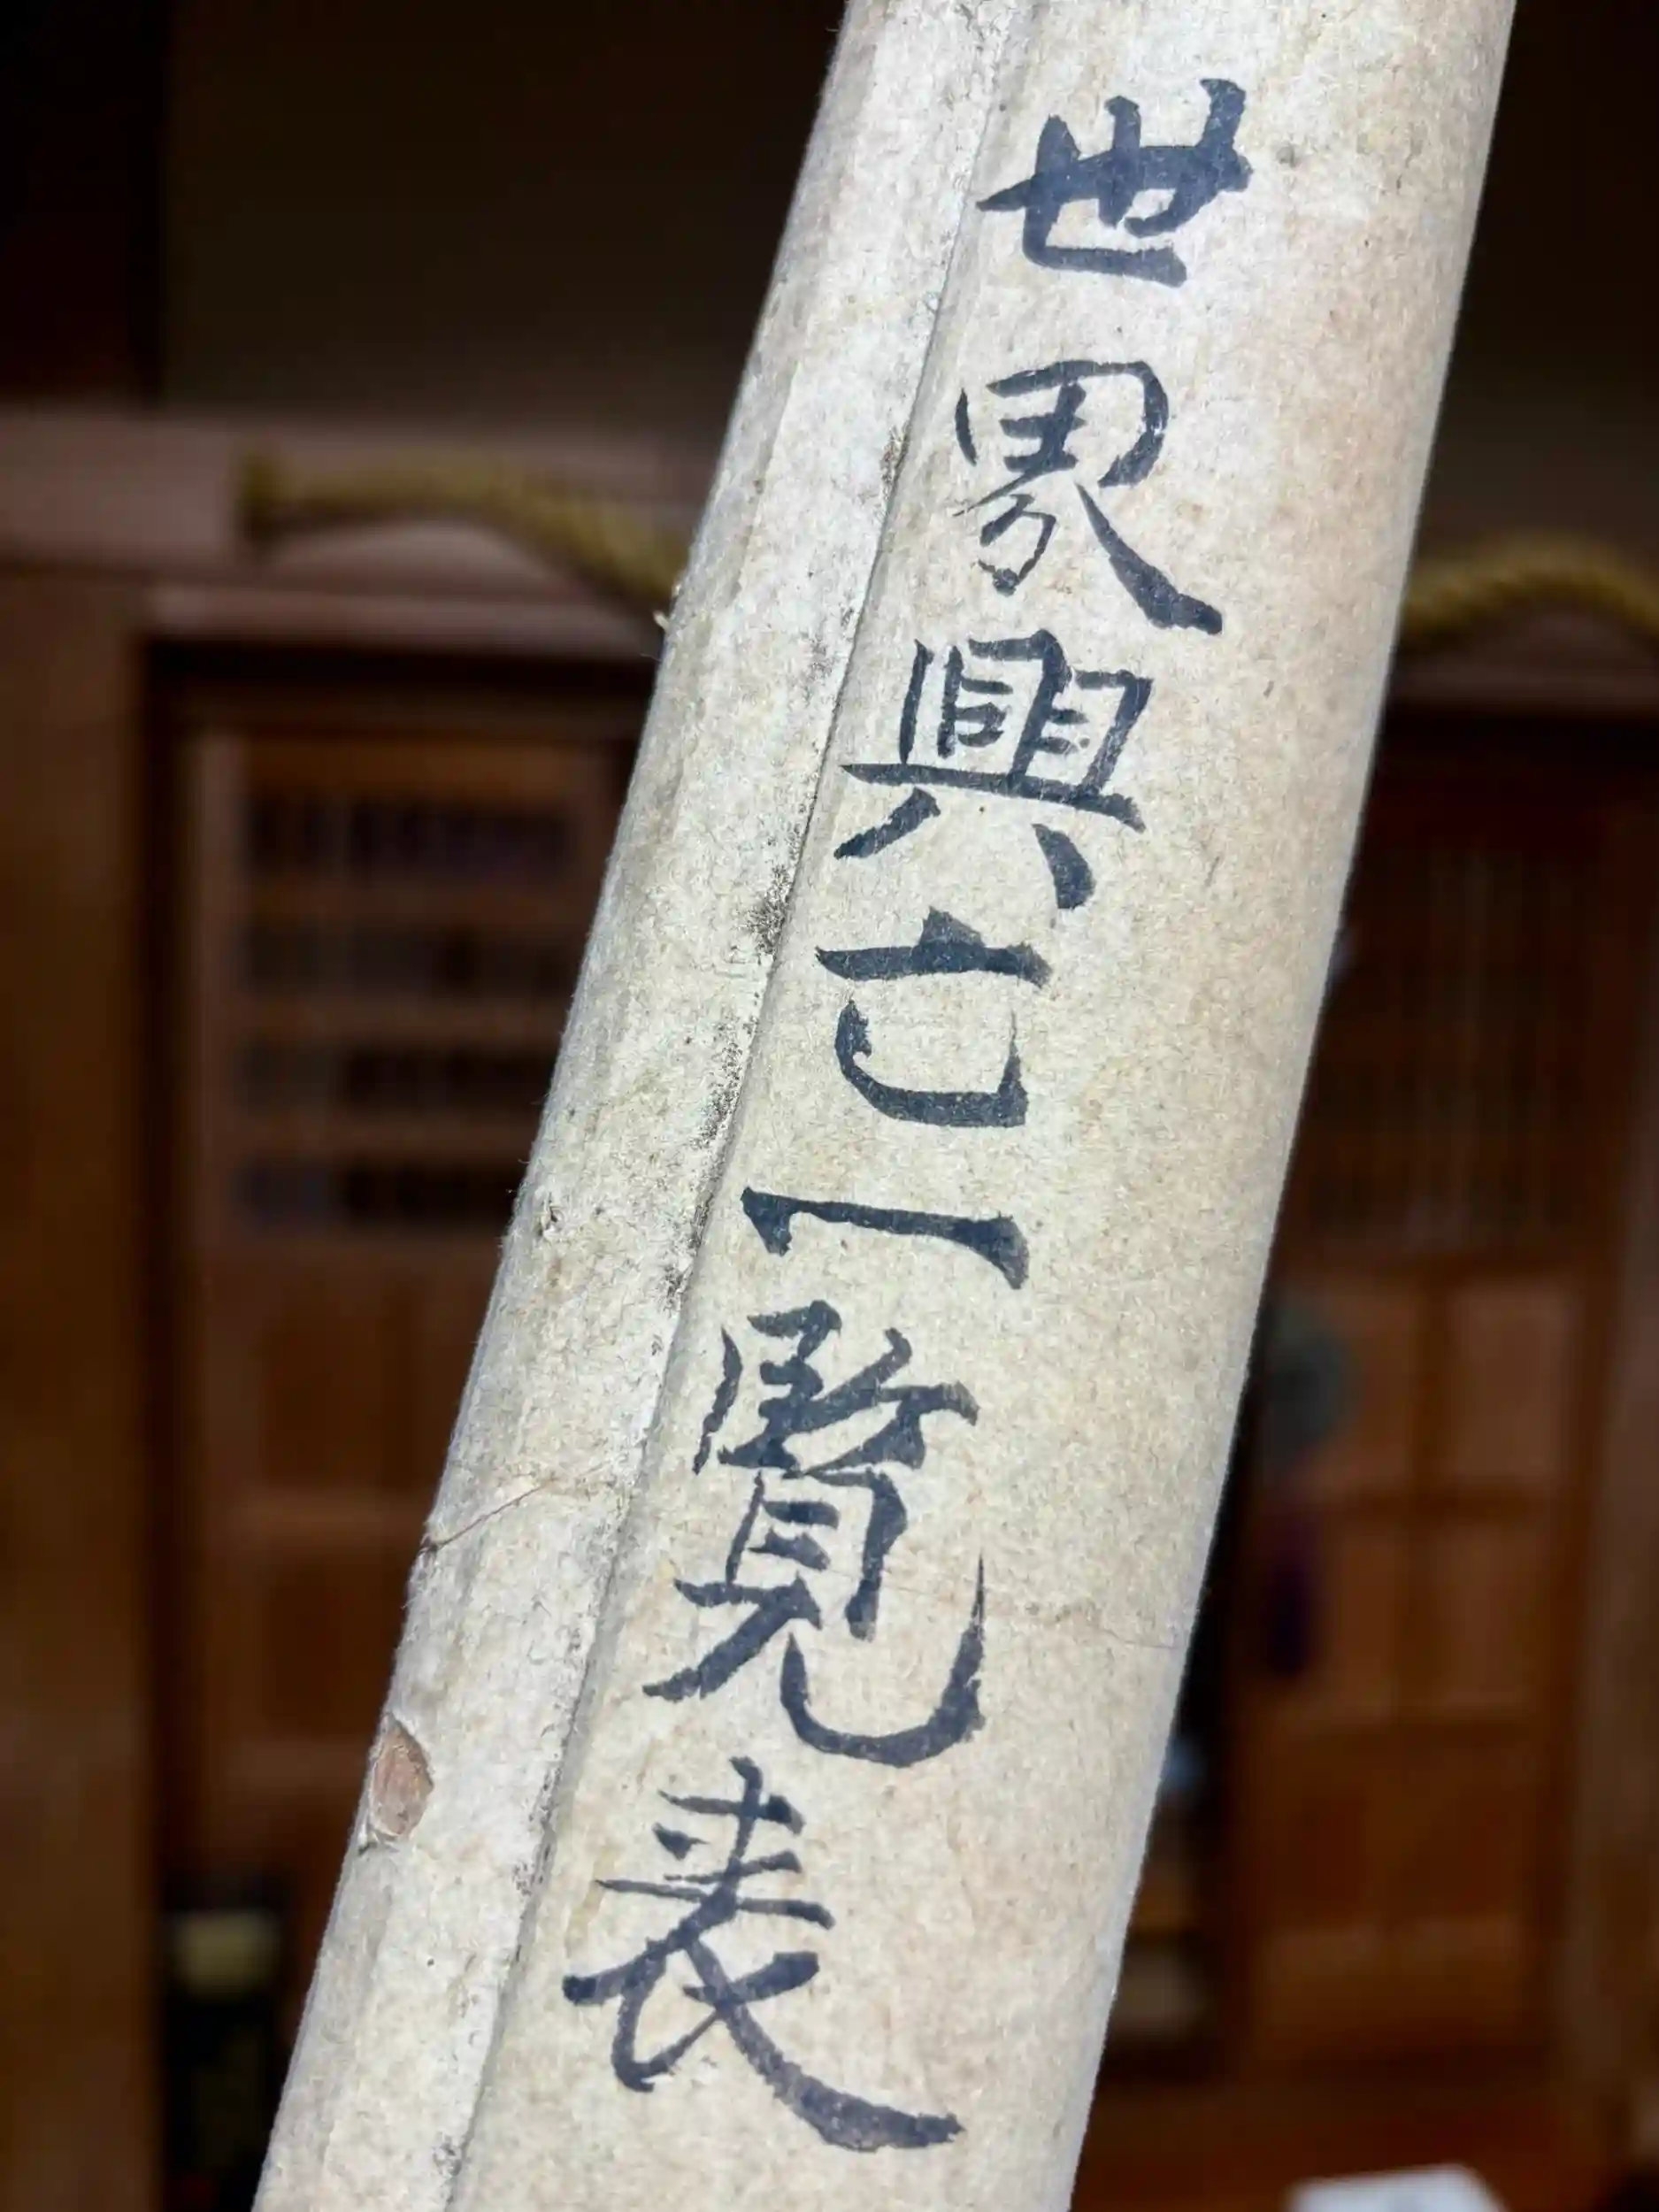 世界興亡一覽表